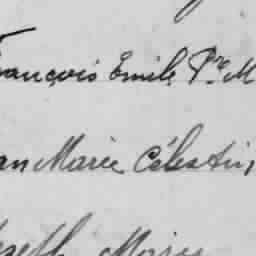 François Emile Pre M
an Marie Célestin,
seph Marie